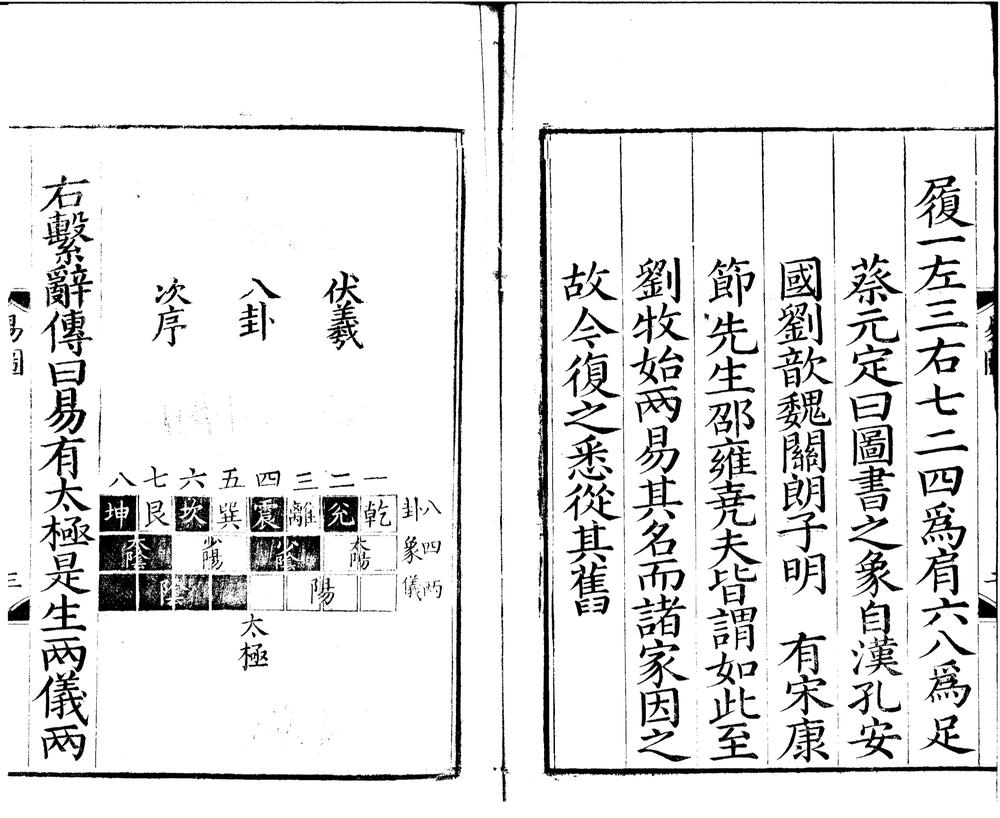 履一左三右七二四爲肩六八爲足
蔡元定曰圖書之象自漢孔安
國劉歆魏關朗子明　有宋康
節先生邵雍堯夫皆謂如此至
劉牧始兩易其名而諸家因之
故今復之悉從其舊
伏羲
八卦
次序
一二三四五六七八
八卦
乾兌離震巽坎艮坤
四象
太陽少陰少陽太陰
兩儀
陽陰
太極
右繫辭傳曰易有太極是生兩儀兩
易圖
三